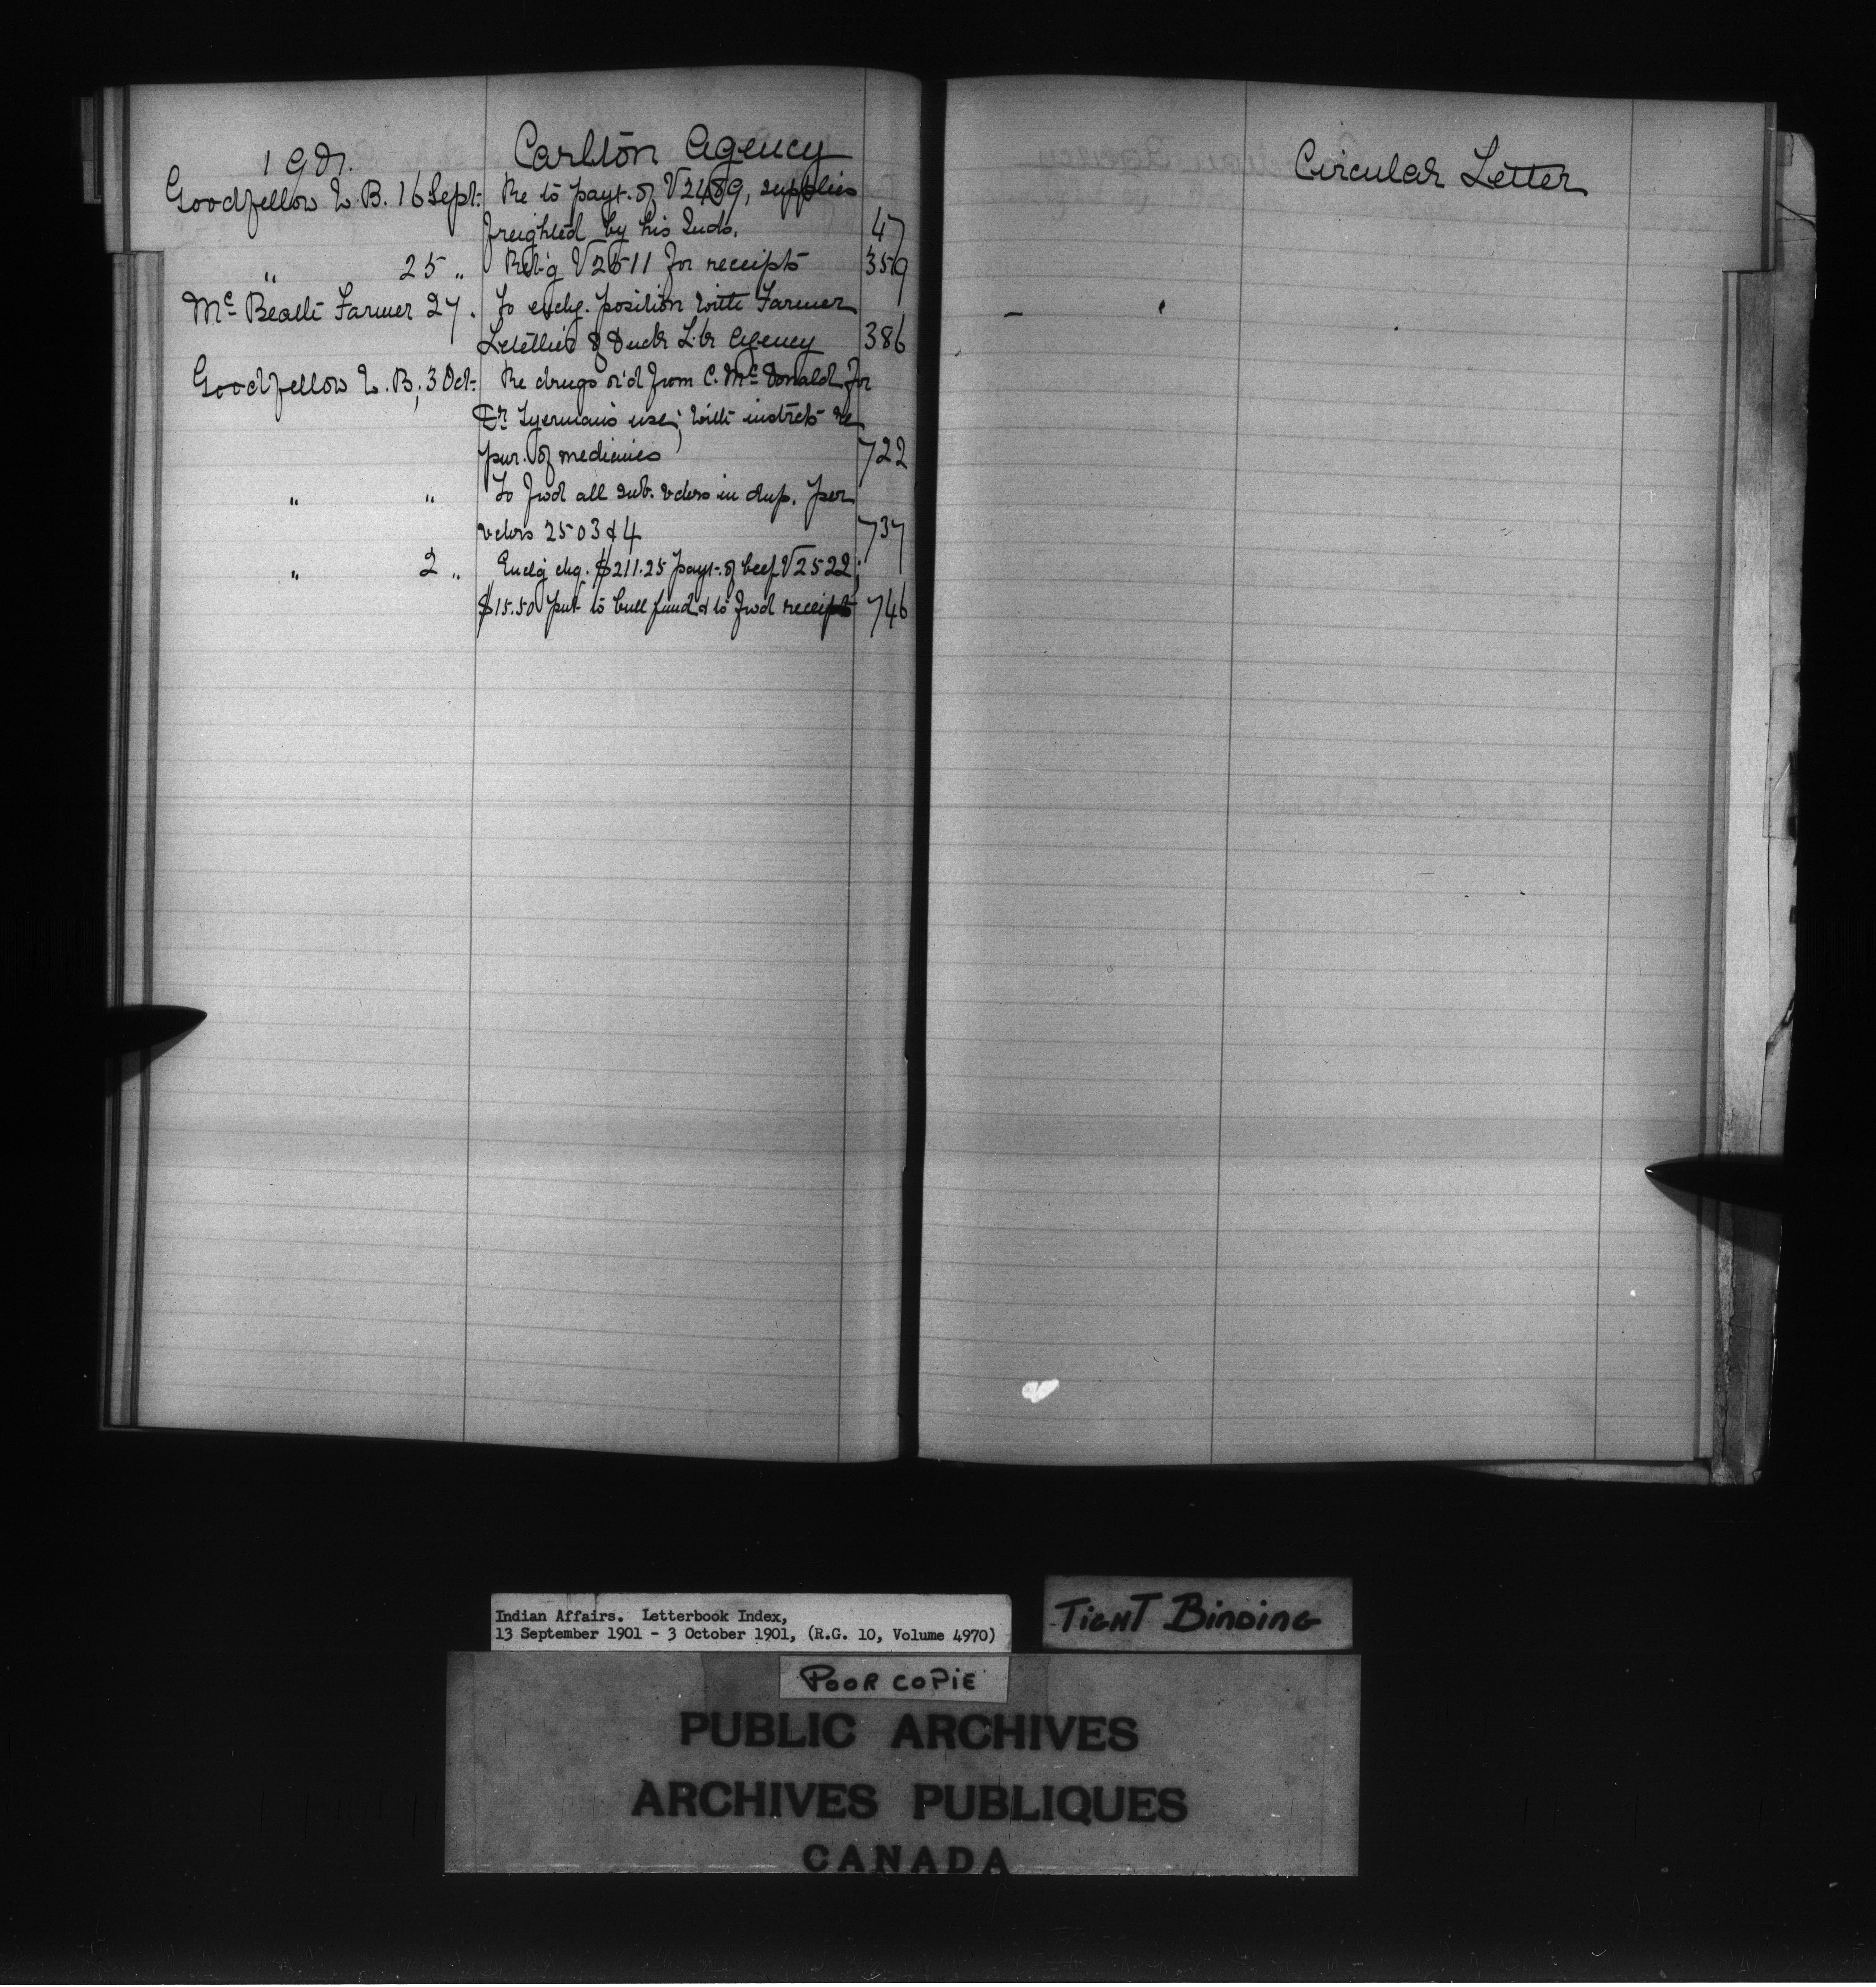 1901. Carlton Agency
Goodfellow L. B. 16 Sept. Re to payt. of V2489, supplies
freighted by his Inds. 47
" 25 " Ret'g V2511 for receipts 359
Mc Beath Farmer 27. To exchg. position with Farmer
of Duck L'k Agency 386
Goodfellow L. B, 3 Oct. Re drugs or'd from C. McDonald for
Dr use; with instrcts re
pur. of medicines 722
" " To fwd all sub. vchrs in dup. per
vchrs 2503 & 4 737
" 2 " Enclg chq. $211.25 payt. of beef V2522;
$15.50 put to bull fund & to fwd receipts 746
Circular Letter
Indian Affairs. Letterbook Index,
13 September 1901 - 3 October 1901, (R.G. 10, Volume 4970)
TIGHT BINDING
POOR COPIE
PUBLIC ARCHIVES
ARCHIVES PUBLIQUES
CANADA